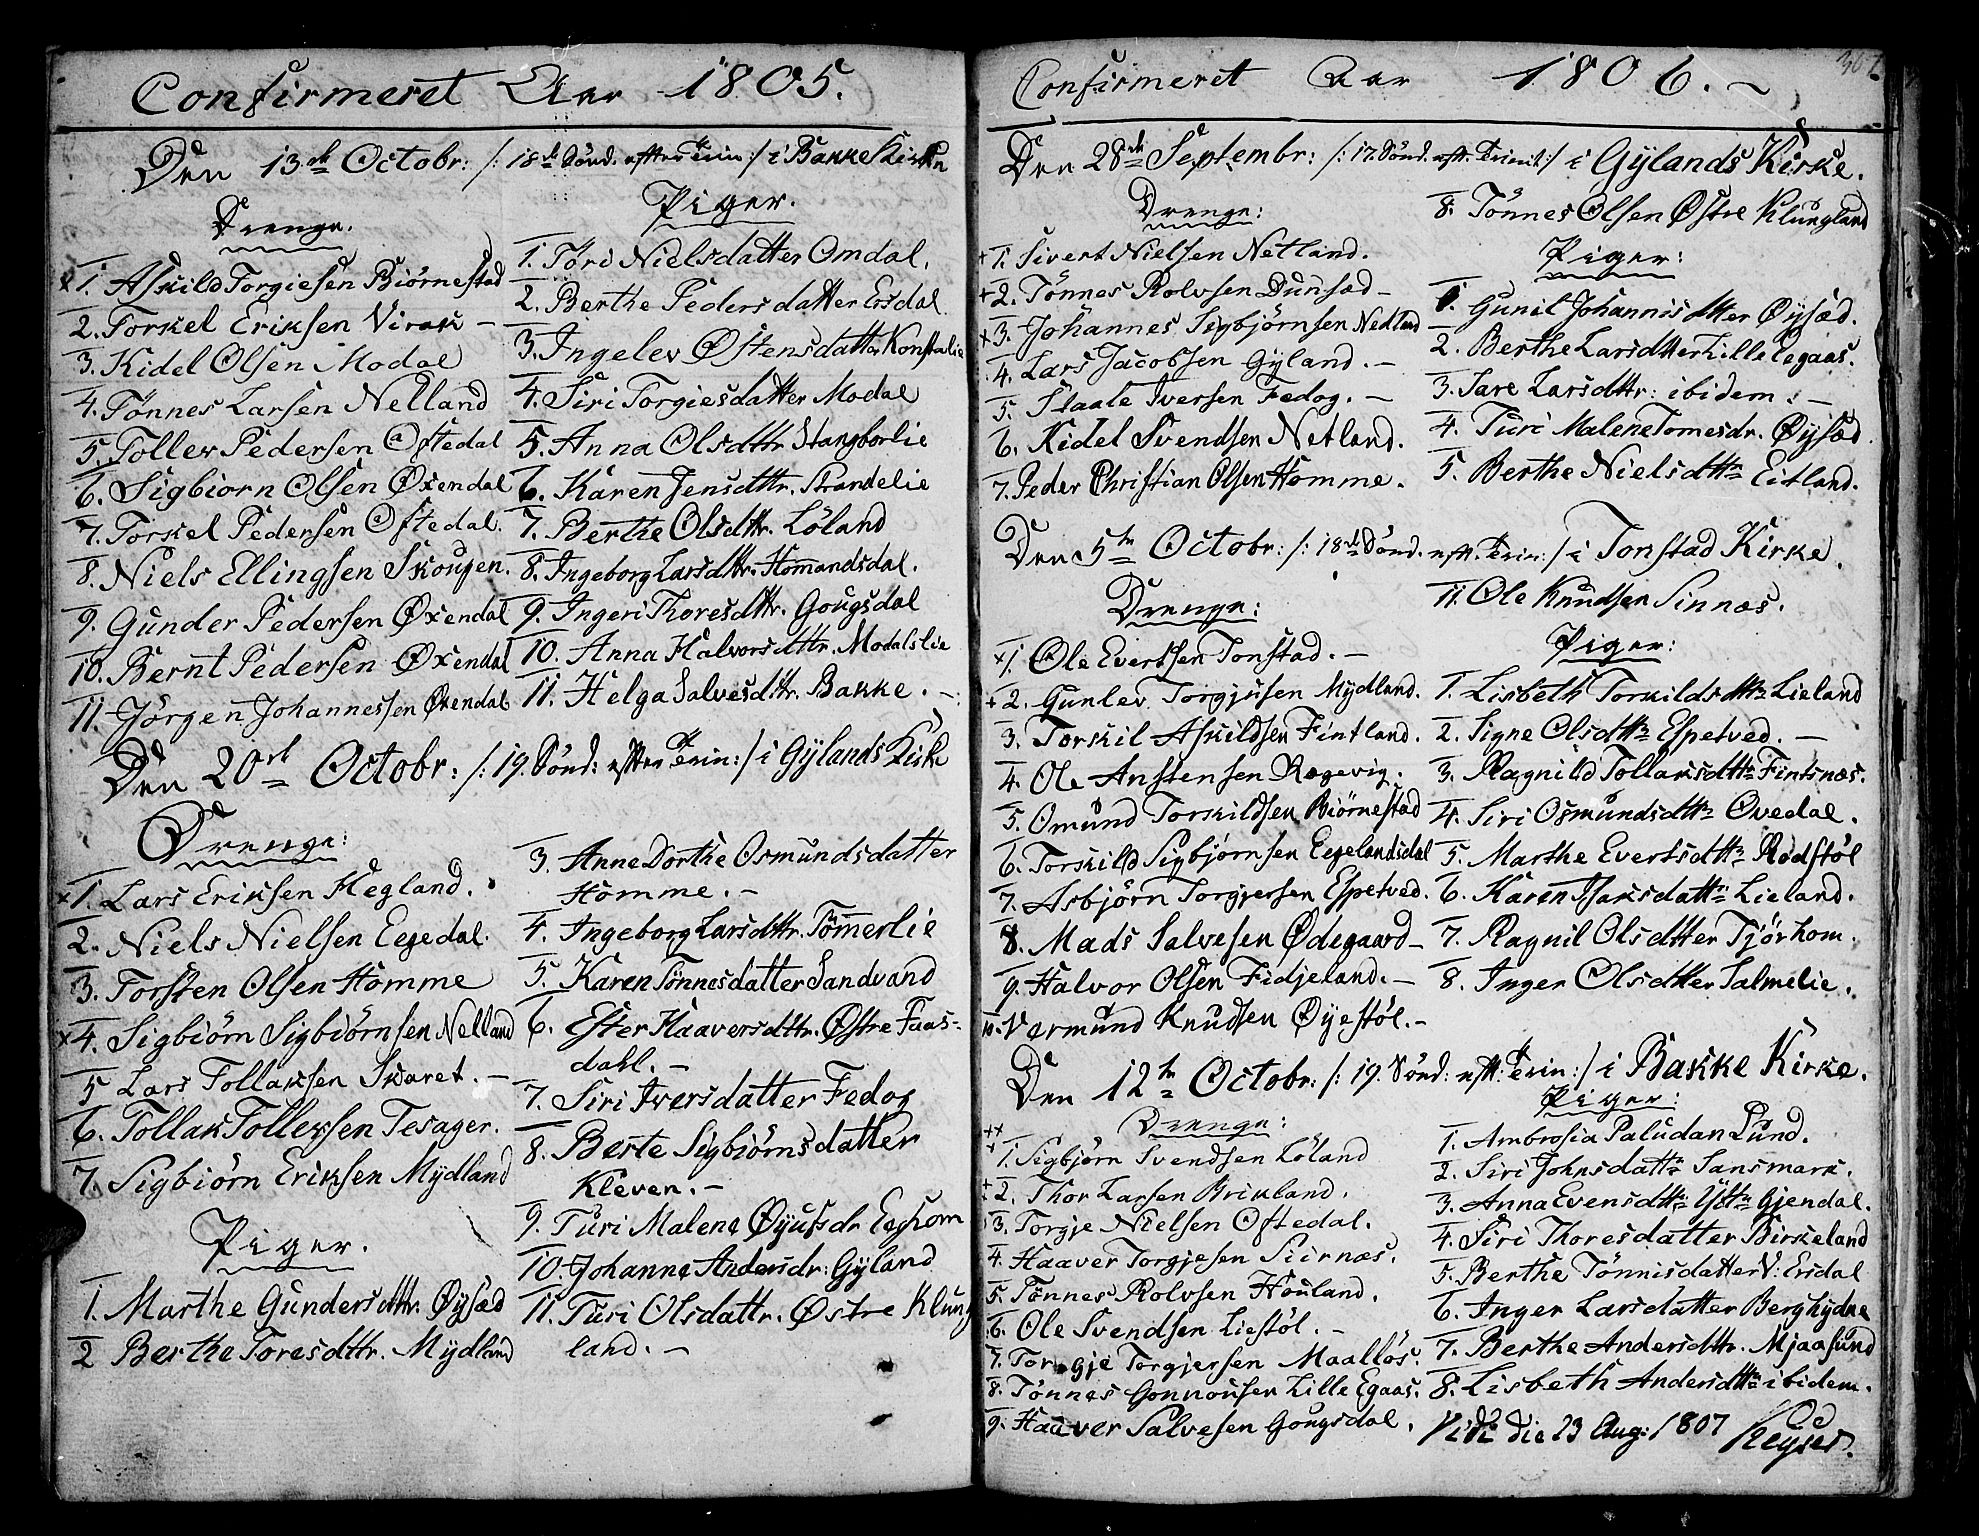 Confirmeret Aar 1805.
Den 13de Octobr: /: 18de Sönd. efter Trin: / i Bakke Kirke
Drenge.
x 1. Askild Torgiesen Biörnestad
2. Torkel Eriksen Virak –
3. Kidel Olsen Modal
4. Tönnes Larsen Nelland
5. Tollev Pedersen Oftedal
6. Sigbiorn Olsen Øxendal
7. Torkel Pedersen Oftedal.
8. Niels Ellingsen Skougen.
9. Gunder Pedersen Øxendal
10. Bernt Pedersen Øxendal
11. Jörgen Johannessen Øxendal
Piger.
1. Töri Nielsdatter Omdal.
2. Berthe Pedersdatter Ersdal
3. Ingelev Østensdatter Konstalie
4. Siri Torgiesdatter Modal
5. Anna Olsdttr Stangborlie
6. Karen Jensdttr. Strandelie
7. Berthe Olsdttr. Löland
8. Ingeborg Larsdttr. Homandsdal.
9. Ingeri Thoresdttr. Gougsdal
10. Anna Halvorsdttr. Modalslie
11. Helga Salvesdttr. Bakke. –
Den 20de Octobr: /: 19. Sönd: efter Trin: / i Gylands Kirke
Drenge:
x 1. Lars Eriksen Hegland.
2. Niels Nielsen Eegedal.
3. Torsten Olsen Homme
x 4. Sigbiörn Sigbiörnsen Nelland
5 Lars Tollaksen Skaret. –
6. Tollak Tollevsen Tesager.
7. Sigbiörn Eriksen Mydland
Piger.
1. Marthe Gundersdttr. Øysæd
2 Berthe Toresdttr. Mydland
3. Anne Dorthe Osmundsdatter
Homme. –
4. Ingeborg Larsdttr. Tömerlie
5. Karen Tönnesdatter Sandvand
6. Ester Haaversdttr. Østre Faas-
dahl. –
7. Siri Iversdatter Fedog
8. Berte Sigbiörnsdatter
Kleven. –
9. Turi Malene Øyufsdr Egehom
10. Johanne Andersdr: Gyland
11. Turi Olsdattr. Østre Klung
land. –
307
Confirmeret Aar 1806. –
Den 28de Septembr: /: 17. Sönd. eft. Trinit: / i Gylands Kirke.
Drenge:
+ 1. Sivert Nielsen Netland.
+ 2. Tönnes Rolvsen Dunsæd –
+ 3. Johannes Sigbjörnsen Nedland
4. Lars Jacobsen Gyland. –
5. Staale Iversen Fedog. –
6. Kidel Svendsen Netland.
7. Peder Christian Olsen Homme.
8. Tönnes Olsen Østre Klungland
Piger:
1. Gunil Johannisdtter Øysæd.
2. Berthe Larsdtter Lille Eegaas.
3. Sare Larsdttr: ibidem. –
4. Turi Malene Tomesdr. Øysæd
5. Berthe Nielsdttr Eitland.
Den 5te Octobr: /: 18de Sönd. eft. Trin: / i Tonstad Kirke.
Drenge:
x 1. Ole Evertsen Tonstad. –
+ 2. Gunlev Torgjusen Mydland.
3. Torskil Askildsen Fintland.
4. Ole Anstensen Rægevig.
5. Omund Torkildsen Biörnestad
6. Torskild Sigbjörnsen Eegelandsdal
7. Asbjörn Torgjersen Espetved.
8. Mads Salvesen Ødegaard –
9. Halvor Olsen Fidjeland. –
10. Vermund Knudsen Øyestöl. –
11. Ole Knudsen Sinnæs.
Piger:
1. Lisbeth Torkildsdttr Lieland
2. Signe Olsdttr Espetved. –
3. Ragnild Tollaksdttr Fintsnæs.
4. Siri Osmundsdttr Ovedal.
5. Marthe Evertsdttr Rödstöl
6. Karen Isaksdattr Lieland.
7. Ragnil Olsdtter Tjörhom.
8. Inger Olsdtter Salmelie.
Den 12te Octobr: /: 19. Sönd: eft: Trin: / i Bakke Kirke.
Drenge:
++
+ 1. Sigbjörn Svendsen Löland
+ 2. Thor Larsen Brikland.
3. Torgje Nielsen Oftedal.
4. Haaver Torgjesen Siirnæs.
5. Tönnes Rolvsen Houland.
6. Ole Svendsen Liestöl. –
7. Torgje Torgjersen Maallös.
8. Tönnes Gonnousen Lille Egaas.
9. Haaver Salvesen Gougsdal.
Piger:
1. Ambrosia Paludan Lund.
2. Siri Johnsdattr Sansmark.
3. Anna Evensdttr Yttr Gjendal.
4. Siri Thoresdatter Birkeland
5. Berthe Tönnisdatter V: Ersdal
6. Inger Larsdatter Berghydne
7. Berthe Andersdttr. Mjaasund
8. Lisbeth Andersdttr ibidem.
Vidi die 23 Aug: 1807 Keyser.